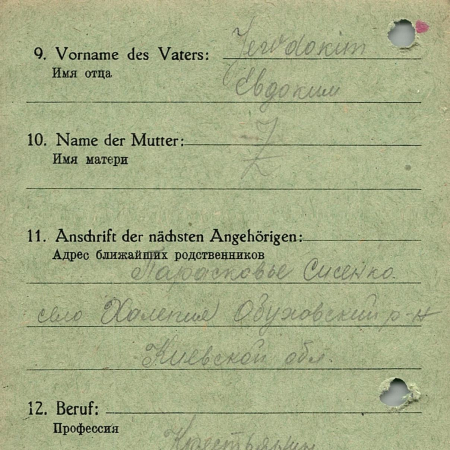 9. Vorname des Vaters: Jewdokim
Имя отца
Евдоким
10. Name der Mutter:
Имя матери
11. Anschrift der nächsten Angehörigen:
Адрес ближайших родственников
Парасковье Сисенко
село Халепия Обуховский р-н
Киевской обл.
12. Beruf:
Профессия
Крестьянин